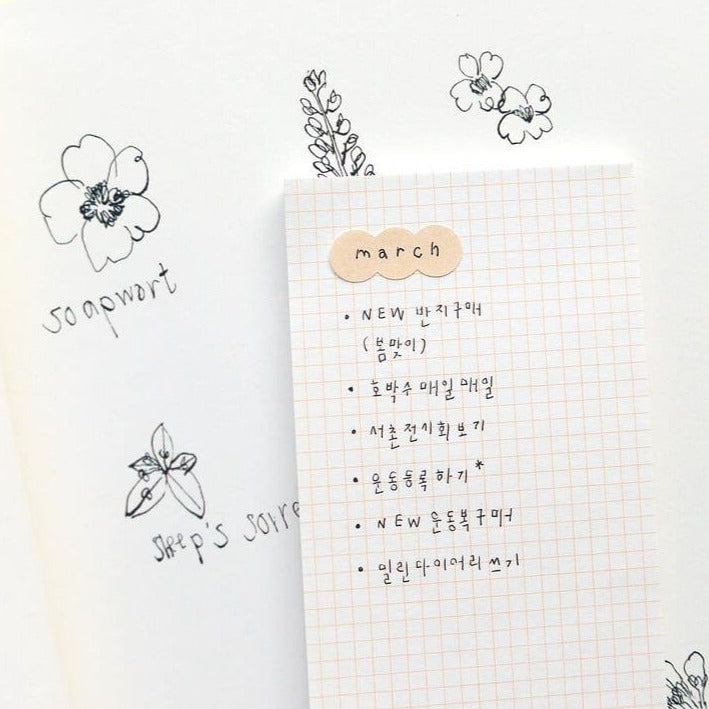 soapwart
sheep's sorre
march
• NEW 반지구매
(봄맞이)
• 호박수 매일매일
• 서촌전시회보기
• 운동등록하기*
• NEW 운동복구매
• 밀린다이어리쓰기